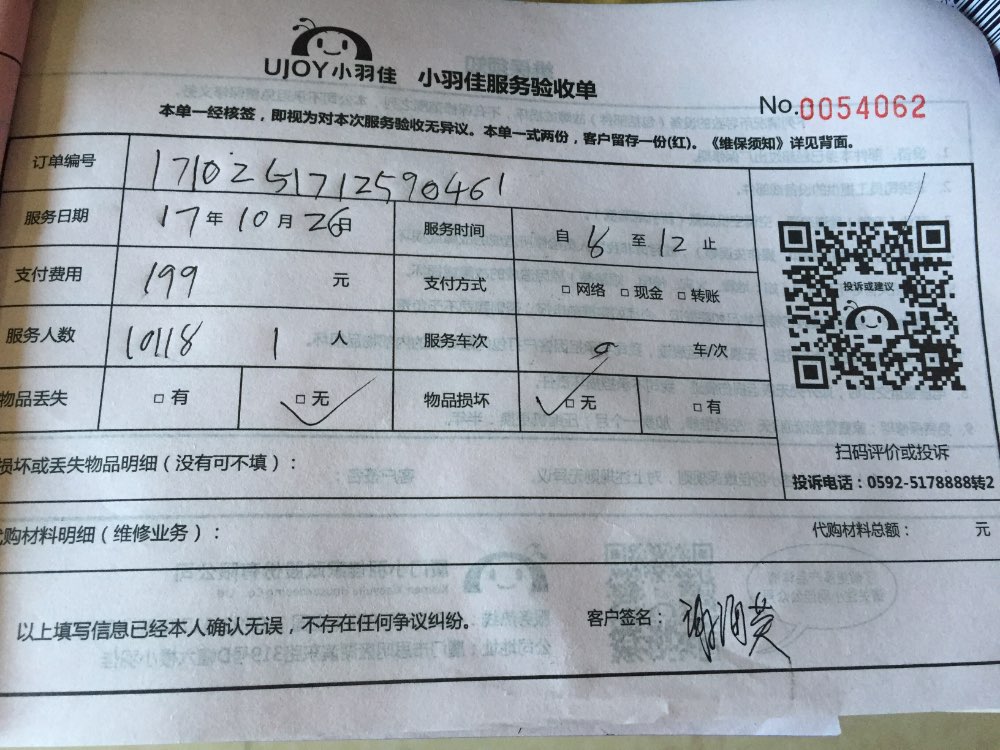 UJOY小羽佳 小羽佳服务验收单
No.0054062
本单一经核签，即视为对本次服务验收无异议。本单一式两份，客户留存一份(红)。《维保须知》详见背面。
订单编号 171025171259 0461
服务日期 17年10月26日 服务时间 自8至12止
支付费用 199 元 支付方式 □网络 □现金 □转账
服务人数 10118 1 人 服务车次 车/次
物品丢失 □有 □无 物品损坏 □无 □有
投诉或建议
损坏或丢失物品明细（没有可不填）：
扫码评价或投诉
投诉电话：0592-5178888转2
代购材料明细（维修业务）：
代购材料总额： 元
以上填写信息已经本人确认无误，不存在任何争议纠纷。
客户签名：